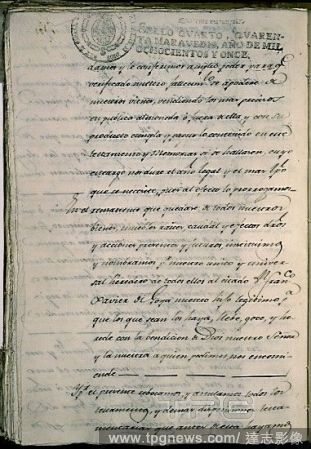 SELLO QVARTO, QVAREN-
TA MARAVEDIS, AÑO DE MIL
OCHOCIENTOS Y ONCE.
y le conferimos amplio poder para q.e
verificado nuestro fallecim.to se apodere de
nuestros vienes, vendiendo los mas precisos
en publica almoneda ó fuera de ella y con su
producto cumpla y pague lo contenido en este
testamento cuyo
encargo nos dure el año legal y el mas tpo
que se necesite, pues al efecto lo prorrogamos
En el remanente que quedare de todos nuestros
vienes, muebles, raices, caudal y efectos dros
y acciones presentes y futuros instituimos
y nombramos p.r nuestro unico y univer
sal heredero de todos ellos al citado Fran.co
Xavier de Goya nuestro hijo legitimo, p.a
que los que sean los haya, lleve, goce, y he
rede con la bendicion de Dios nuestro Señor
y la nuestra a quien pedimos nos encomi
ende
Y p.r el presente revocamos y anulamos todos los
testamentos, y demas disposiciones testa
mentarias que antes de esta hayamos
www.tpgnews.com/達志影像